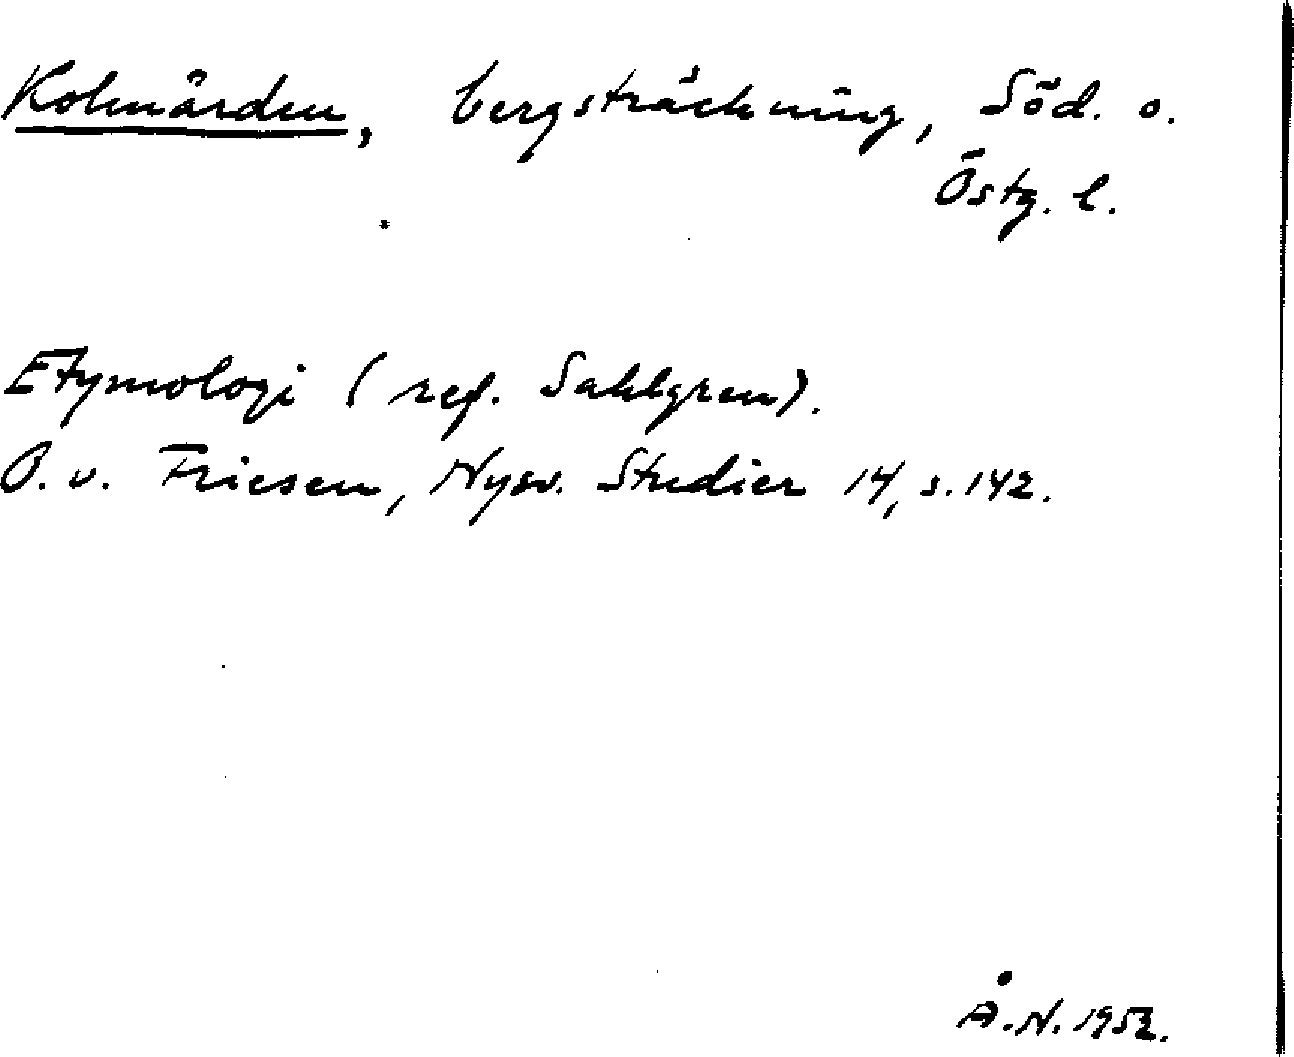 Kolmården, bergsträckning, Söd. o.
Östg. l.
Etymologi (ref. Sahlgren).
O. v. Friesen, Nysv. Studier 14, s. 142.
Å. N. 1952.